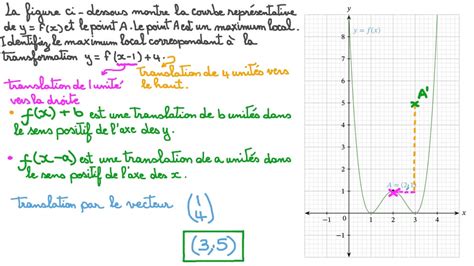 La figure ci-dessous montre la courbe représentative
de y = f(x) et le point A. Le point A est un maximum local.
Identifiez le maximum local correspondant à la
transformation y = f(x-1) + 4.
translation de 4 unités vers
le haut.
translation de 1 unité
vers la droite
• f(x) + b est une translation de b unités dans
le sens positif de l'axe des y.
• f(x-a) est une translation de a unités dans
le sens positif de l'axe des x.
translation par le vecteur (1 4)
(3,5)
y
y = f(x)
6
5
A'
4
3
2
A = (2, 1)
1
-1
1
2
3
4
x
-1